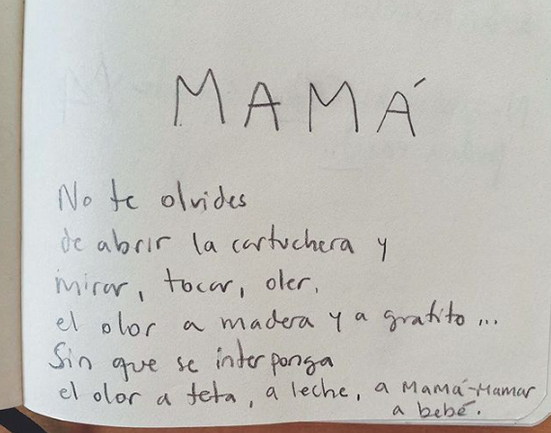 MAMÁ
No te olvides
de abrir la cartuchera y
mirar, tocar, oler.
el olor a madera y a grafito...
Sin que se interponga
el olor a teta, a leche, a Mamá-Mamar
a bebé.